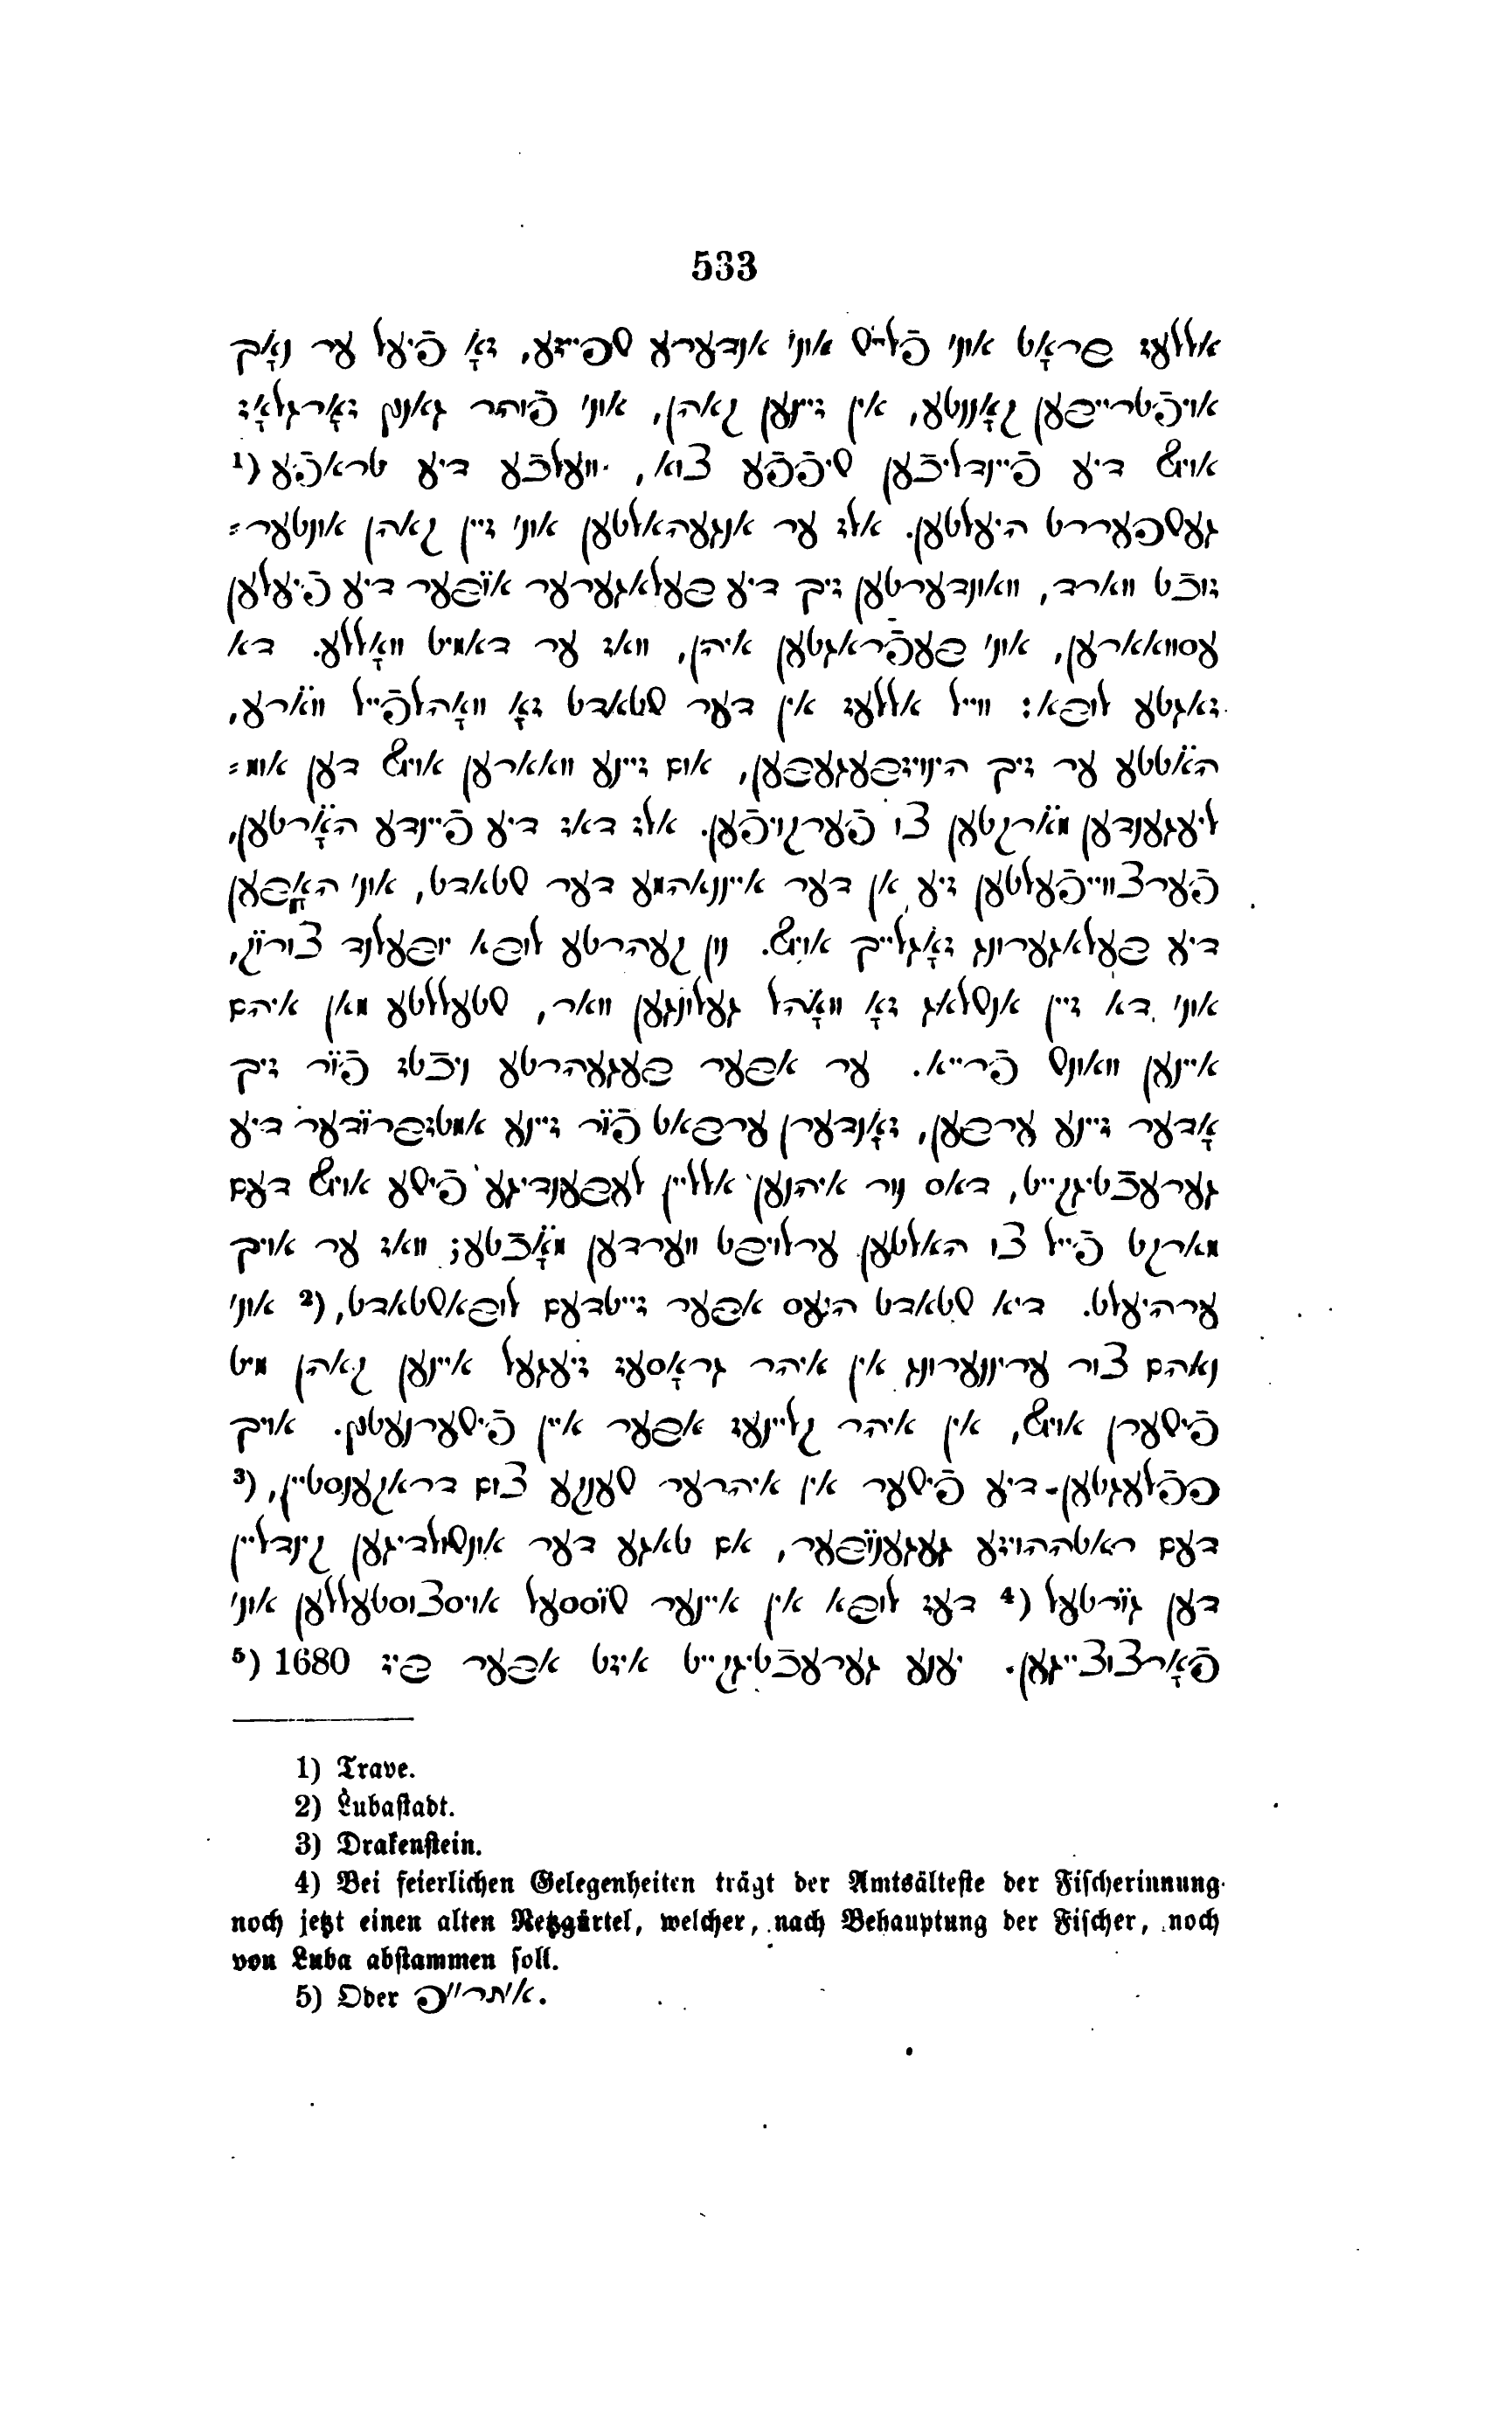 533
אללעז בראָט אונ' פֿלייש אונ' אנדערע שפייזע, זאָ פֿיעל ער נאָך
אויפֿטרייבען קאָננטע, אין זיינען קאהן, אונ' פֿוהר גאנץ זאָרגלאָז
אויף דיע פֿיינדליכֿען שיפֿפֿע צוא, וועלכֿע דיע טראפֿע (¹
געשפעררט היעלטען. אלז ער אנגעהאלטען אונ' זיין קאהן אונטער⸗
זוכֿט ווארד, וואונדערטען זיך דיע בעלאגערער אויבער דיע פֿיעלען
עסוואארען, אונ' בעפֿראגטען איהן, וואז ער דאמיט וואָללע. דא
זאגטע לובא: ווייל אללעז אין דער שטאדט זאָ וואָהלפֿייל ווארע,
האטטע ער זיך הינויזבעגעבען, אום זיינע וואארען אויף דען אומ⸗
ליעגענדען מארקטען צו פֿערקויפֿען. אלז דאז דיע פֿיינדע האָרטען,
פֿערצווייפֿעלטען זיע אן דער איינאהמע דער שטאדט, אונ' האָבען
דיע בעלאגערונג זאָגלייך אויף. נון קעהרטע לובא יובעלנד צוריק,
אונ' דא זיין אנשלאג זאָ וואָהל געלונגען וואר, שטעללטע מאן איהם
איינען וואונש פֿרייא. ער אבער בעגעהרטע ניכֿטז פֿיר זיך
אָדער זיינע ערבען, זאָנדערן ערבאט פֿיר זיינע אמטזברידער דיע
גערעכֿטיגקייט, דאס נור איהנען אלליין לעבענדיגע פֿישע אויף דעם
מארקט פֿייל צו האלטען ערלויבט ווערדען מאָכֿטע; וואז ער אויך
ערהיעלט. דיא שטאדט היעס אבער זייטדעם לובאשטאדט, (² אונ'
נאהם צור ערינערונג אין איהר גראָסעז זיעגעל איינען קאהן מיט
פֿישערן אויף, אין איהר קליינעז אבער איין פֿישערנעטץ. אויך
פפֿלעגטען דיע פֿישער אין איהרער שענקע צום דראקענסטיין, (³
דעם ראטההויזע געגענויבער, אם טאגע דער אונשולדיגען קינדליין
דען גירטעל (⁴ דעז לובא אין איינער שוססעל אויסצוסטעללען אונ'
פֿאָרצוצייגען. יענע גערעכֿטיגקייט איזט אבער ביז 1680 (⁵
1) Trave.
2) Lubastadt.
3) Drakenstein.
4) Bei feierlichen Gelegenheiten trägt der Amtsälteste der Fischerinnung
noch jetzt einen alten Netzgürtel, welcher, nach Behauptung der Fischer, noch
von Luba abstammen soll.
5) Oder אתר״פ.